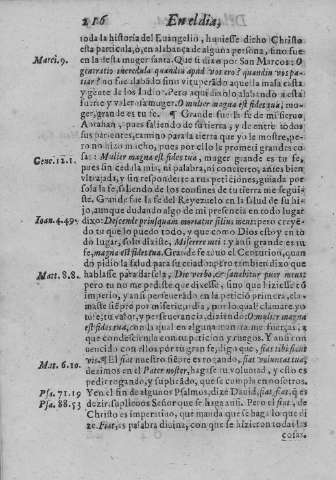 216 En el dia,
toda la historia del Euangelio, huuiesse dicho Christo
esta particula, ò, en alabança de alguna persona, sino fue
en la desta muger santa. Que si dixo por San Marcos: O
Marci. 9. generatio incredula quandiu apud vos ero? quandiu vos pa-
tiar? no fue dicho sino vituperio aquella mala casta
y gente de los Iudios. Pero aqui dixolo alabando a esta
fuerte y valerosa muger. O mulier magna est fides tua, mu-
ger, grande es tu fe. ¶ Grande fue la fe de mi sieruo
Abrahan, pues saliendo de su tierra, y de entre todos
sus parientes, camino para la tierra que yo le mostre, pe-
ro no hizo mucho, pues por ello le prometi grandes co-
Gene. 12. 1. sas: Mulier magna est fides tua, muger grande es tu fe,
pues sin cedula mia, ni palabra, ni concierto, antes bien
vltrajada, y sin responderte a tus peticiones, guiada por
sola la fe, saliendo de los confines de tu tierra me segui-
ste. Grande fue la fe del Reyezuelo en la salud de su hi-
jo, aunque dudando algo de mi presencia en todo lugar
Ioan. 4. 49. dixo: Descende priusquam moriatur filius meus: pero creyẽ-
do tu que lo puedo todo, y que como Dios estoy en to
do lugar, solo dixiste, Miserere mei: y ansi grande es tu
fe, magna est fides tua. Grande fe tuuo el Centurion, quan
do pidio la salud para su criado, pero tambien dixo que
Mat. 8. 8. hablasse para darsela, Dic verbo & sanabitur puer meus:
pero tu no me pediste que dixesse, sino que hiziesse cõ
imperio, y ansi perseuerãdo en la peticion primera, cla-
maste siẽpre por misericordia, por lo qual clamare yo
tu fe, tu valor, y perseuerancia, diziendo: O mulier magna
est fides tua, con la qual en alguna manera me fuerças, a
que condescienda con tu peticion y ruegos. Y ansi con
uencido con ellos por tu gran fe, digo que, fiat tibi sicut
vis. ¶ El fiat nuestro siẽpre es rogando, fiat voluntas tua,
Mat. 6. 10. dezimos en el Pater noster, hagase tu voluntad, y esto es
pedir rogando, y suplicãdo, que se cumpla en nosotros.
Psa. 71. 19 Y en el fin de algunos Psalmos, dize Dauid, fiat, fiat, q̃ es
Psa. 88. 53 dezir, suplicoos Señor que se haga ansi. Pero el fiat, de
Christo es imperatiuo, que manda que se haga lo que di
ze. Fiat, es palabra diuina, con que se hizieron todas las
cosas.